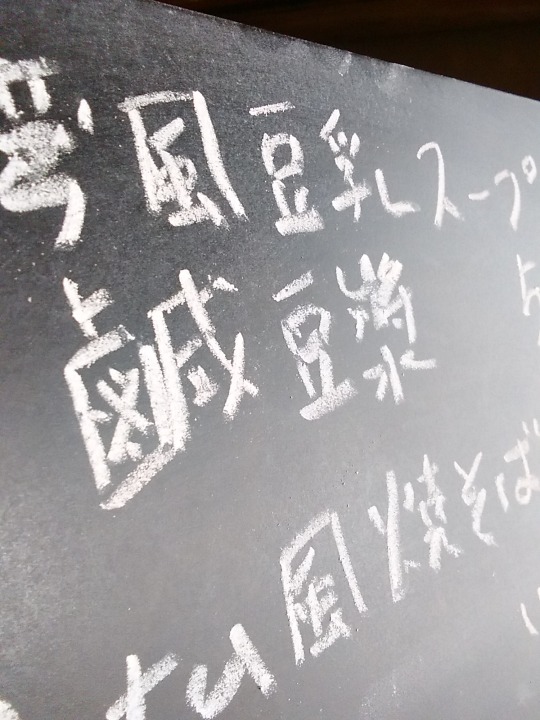 風豆乳スープ
鹹豆漿
風焼そば